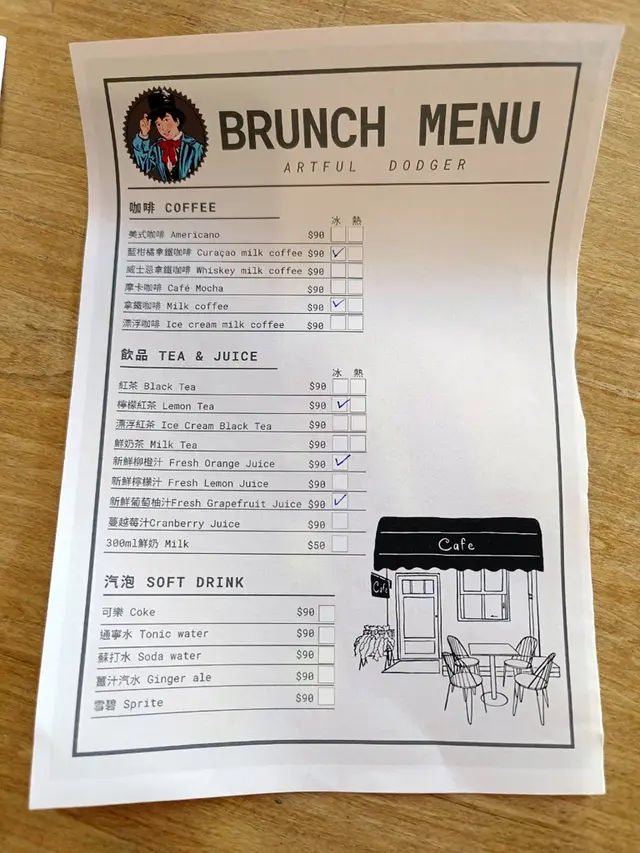 BRUNCH MENU
ARTFUL DODGER
咖啡 COFFEE
冰 熱
美式咖啡 Americano $90
藍柑橘拿鐵咖啡 Curaçao milk coffee $90 ✓
威士忌拿鐵咖啡 Whiskey milk coffee $90
摩卡咖啡 Café Mocha $90
拿鐵咖啡 Milk coffee $90 ✓
漂浮咖啡 Ice cream milk coffee $90
飲品 TEA & JUICE
冰 熱
紅茶 Black Tea $90
檸檬紅茶 Lemon Tea $90 ✓
漂浮紅茶 Ice Cream Black Tea $90
鮮奶茶 Milk Tea $90
新鮮柳橙汁 Fresh Orange Juice $90 ✓
新鮮檸檬汁 Fresh Lemon Juice $90
新鮮葡萄柚汁Fresh Grapefruit Juice $90 ✓
蔓越莓汁Cranberry Juice $90
300ml鮮奶 Milk $50
汽泡 SOFT DRINK
可樂 Coke $90
通寧水 Tonic water $90
蘇打水 Soda water $90
薑汁汽水 Ginger ale $90
雪碧 Sprite $90
Cafe
Cafe